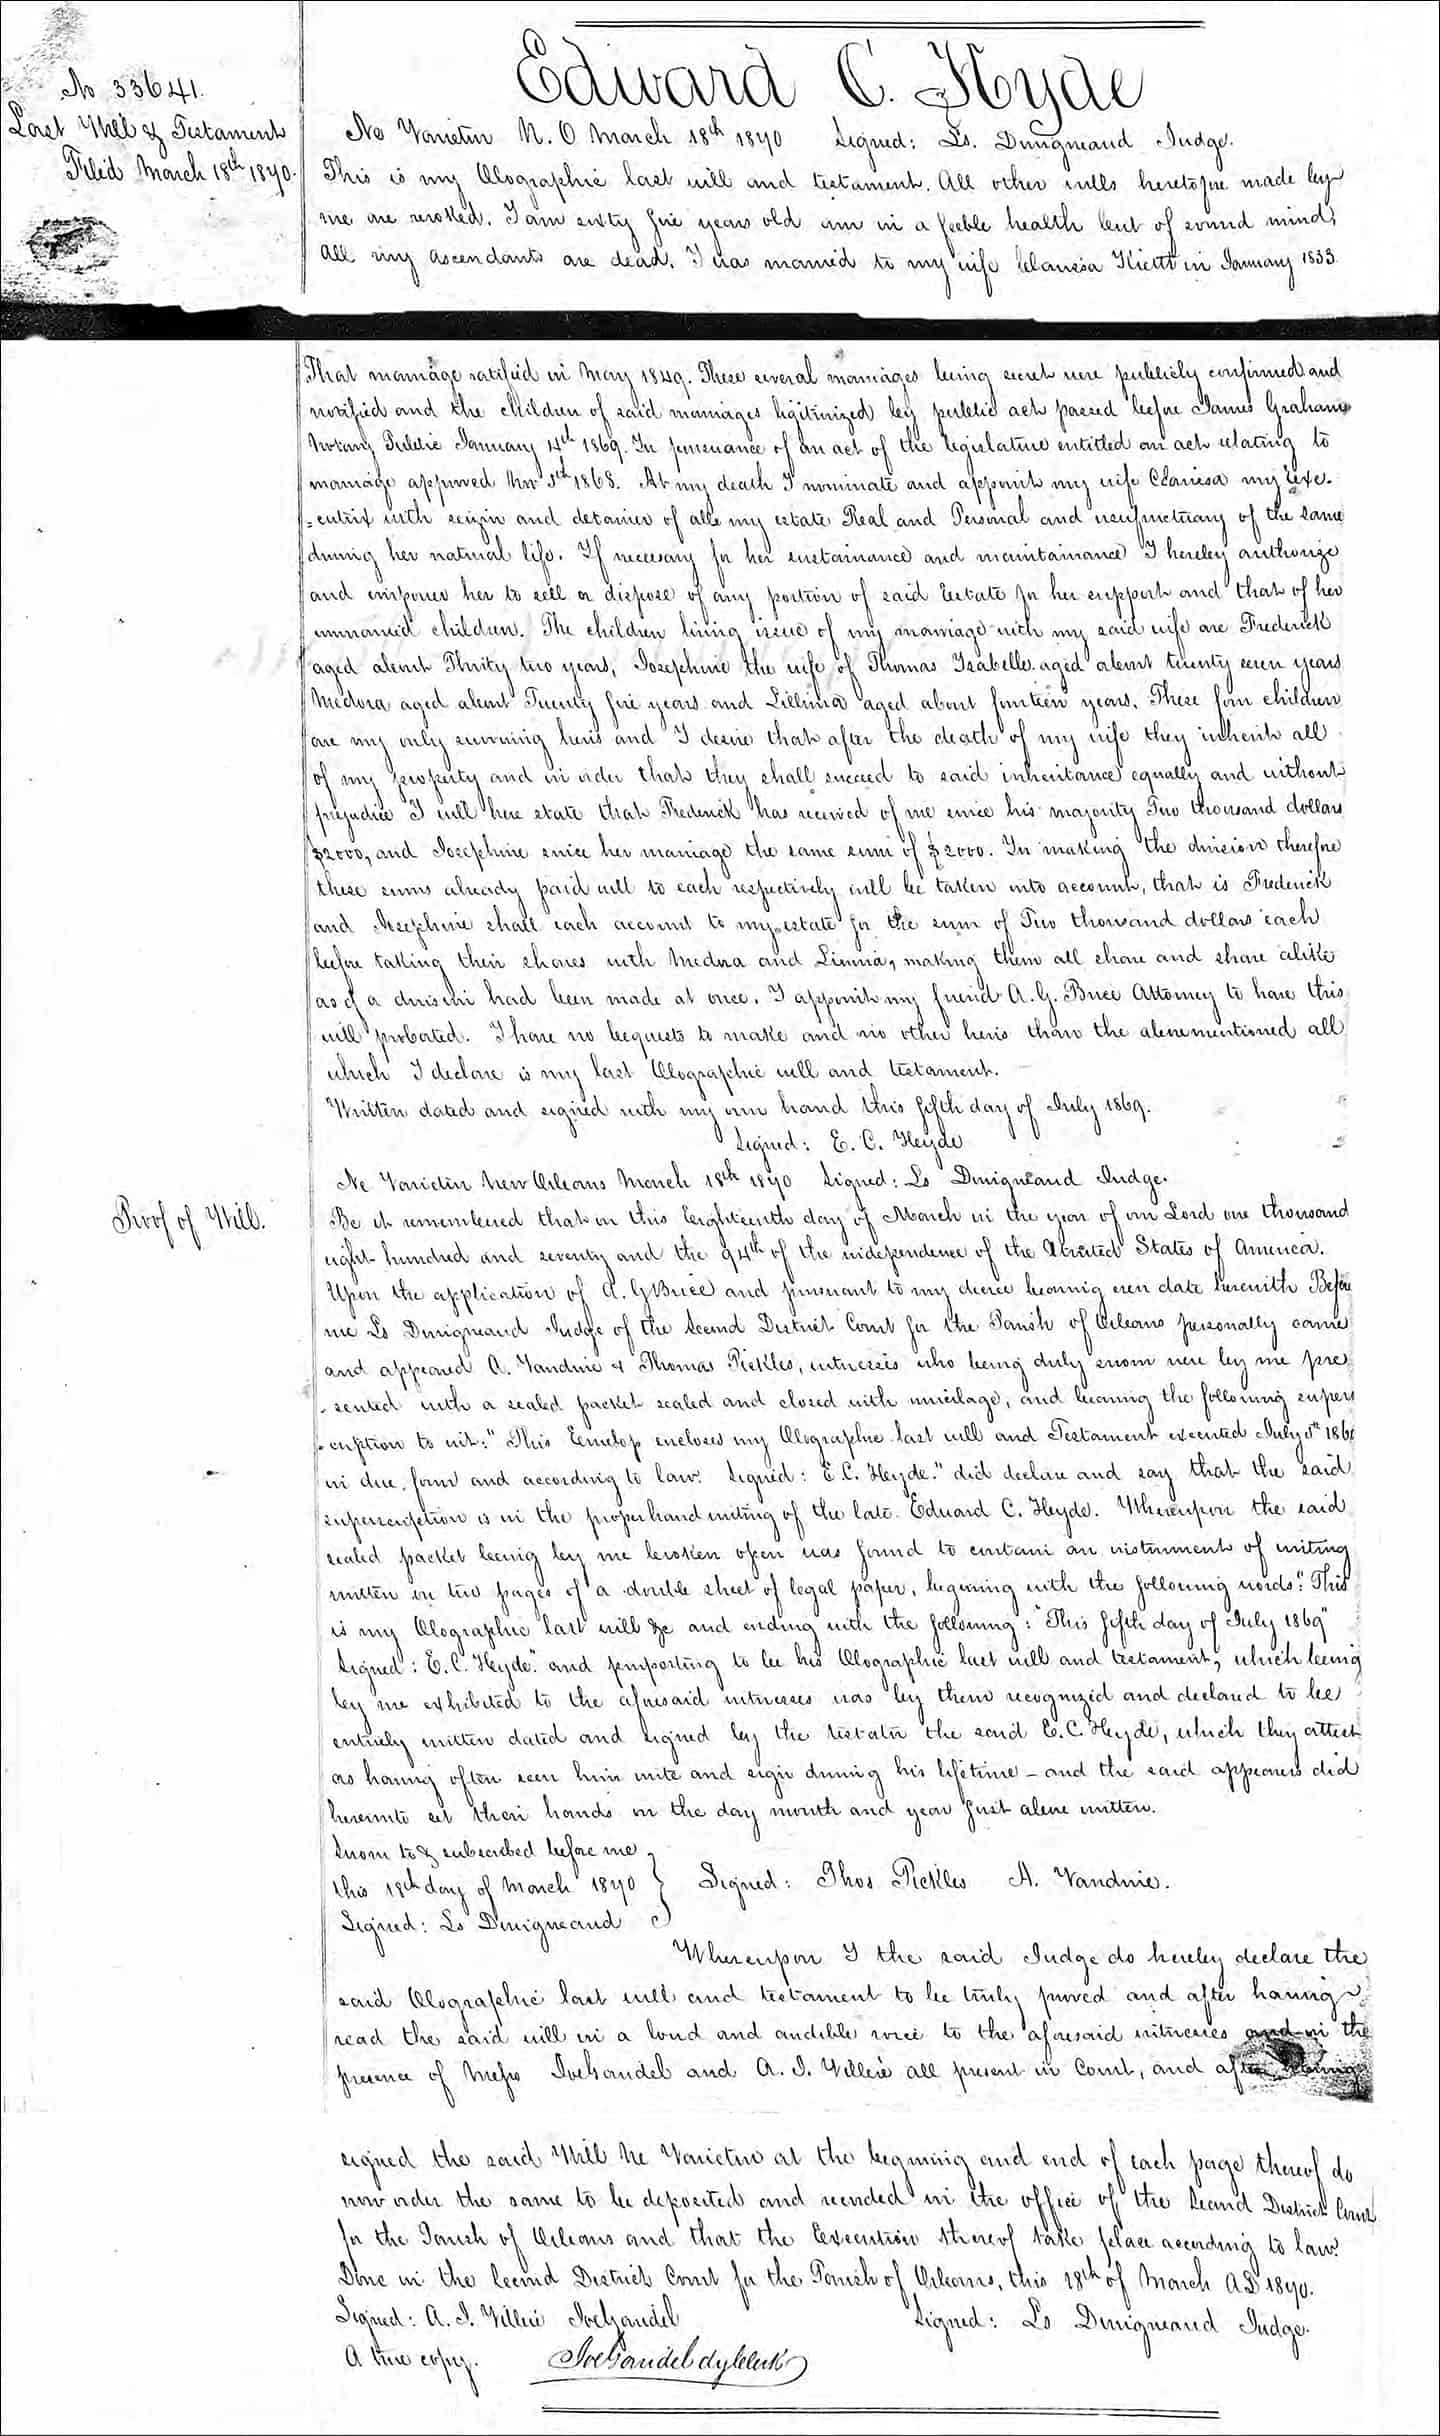 Edward C. Hyde
No 33641.
Last Will & Testament
Filed March 18th 1870.
Ne Varietur N. O March 18th 1870 Signed: Ls. Duvigneaud Judge.
This is my Olographic last will and testament. All other wills heretofore made by
me are revoked. I am sixty five years old am in a feeble health but of sound mind,
all my ascendants are dead. I was married to my wife Clarissa in January 1833.
That marriage ratified in May 1849. These several marriages being secret were publicly confirmed and
notified and the children of said marriages ligitimized by public act passed before James Graham
Notary Public January 4th 1869. In pursuance of an act of the legislature entitled an act relating to
marriage approved Nov 5th 1868. At my death I nominate and appoint my wife Clarissa my Exe-
=cutrix with seizin and detainer of all my estate Real and Personal and usufructuary of the same
during her natural life. If necessary for her sustainance and maintainance I hereby authorize
and empower her to sell or dispose of any portion of said Estate for her support and that of her
unmarried children. The children living issue of my marriage with my said wife are Frederick
aged about Thirty two years, Josephine the wife of Thomas Isabelle aged about twenty seven years
Medora aged about Twenty five years and Lillinia aged about fourteen years. These four children
are my only surviving heirs and I desire that after the death of my wife they inherit all
of my property and in order that they shall succeed to said inheritance equally and without
prejudice I will here state that Frederick has received of me since his majority Two thousand dollars
$2000, and Josephine since her marriage the same sum of $2000. In making the division therefore
these sums already paid will to each respectively will be taken into account, that is Frederick
and Josephine shall each account to my estate for the sum of Two thousand dollars each
before taking their shares with Medora and Linnia, making them all share and share alike
as if a division had been made at once. I appoint my friend A. G. Brice Attorney to have this
will probated. I have no bequests to make and no other heirs than the abovementioned all
which I declare is my last Olographic will and testament.
Written dated and signed with my own hand this fifth day of July 1869.
Signed: E. C. Heyde
Ne Varietur New Orleans March 18th 1870 Signed: Ls Duvigneaud Judge.
Proof of Will.
Be it remembered that on this Eighteenth day of March in the year of our Lord one thousand
eight hundred and seventy and the 94th of the independence of the United States of America.
Upon the application of A. G Brice and pursuant to my decree bearing even date herewith Before
me Ls Duvigneaud Judge of the Second District Court for the Parish of Orleans personally came
and appeared A. Vandrie & Thomas Pickles, witnesses who being duly sworn were by me pre
-sented with a sealed packet sealed and closed with mucilage, and bearing the following supers
-cription to wit: "This Envelop encloses my Olographic last will and Testament executed July 5th 186
in due form and according to law. Signed: E. C. Heyde." did declare and say that the said
superscription is in the proper handwriting of the late Edward C. Heyde. Whereupon the said
sealed packet being by me broken open was found to contain an instrument of writing
written on two pages of a double sheet of legal paper, begining with the following words: "This
is my Olographic last will &c and ending with the following: "This fifth day of July 1869"
Signed: E. C. Heyde." and purporting to be his Olographic last will and testament, which being
by me exhibited to the aforesaid witnesses was by them recognized and declared to be
entirely written dated and signed by the testator the said E. C. Heyde, which they attest
as having often seen him write and sign during his lifetime - and the said appearers did
hereunto set their hands on the day month and year just above written.
Sworn to & subscribed before me
this 18th day of March 1870 } Signed: Thos Pickles A. Vandrie.
Signed: Ls Duvigneaud
Whereupon I the said Judge do hereby declare the
said Olographic last will and testament to be truly proved and after having
read the said will in a loud and audible voice to the aforesaid witnesses and in the
presence of Messrs and A. J. Villeré all present in Court, and after having
signed the said Will Ne Varietur at the begining and end of each page thereof do
now order the same to be deposited and recorded in the office of the Second District Court
for the Parish of Orleans and that the Execution thereof take place according to law.
Done in the Second District Court for the Parish of Orleans, this 18th of March A.D 1870.
Signed: A. J. Villeré Signed: Ls Duvigneaud Judge.
A true copy. dy Clerk